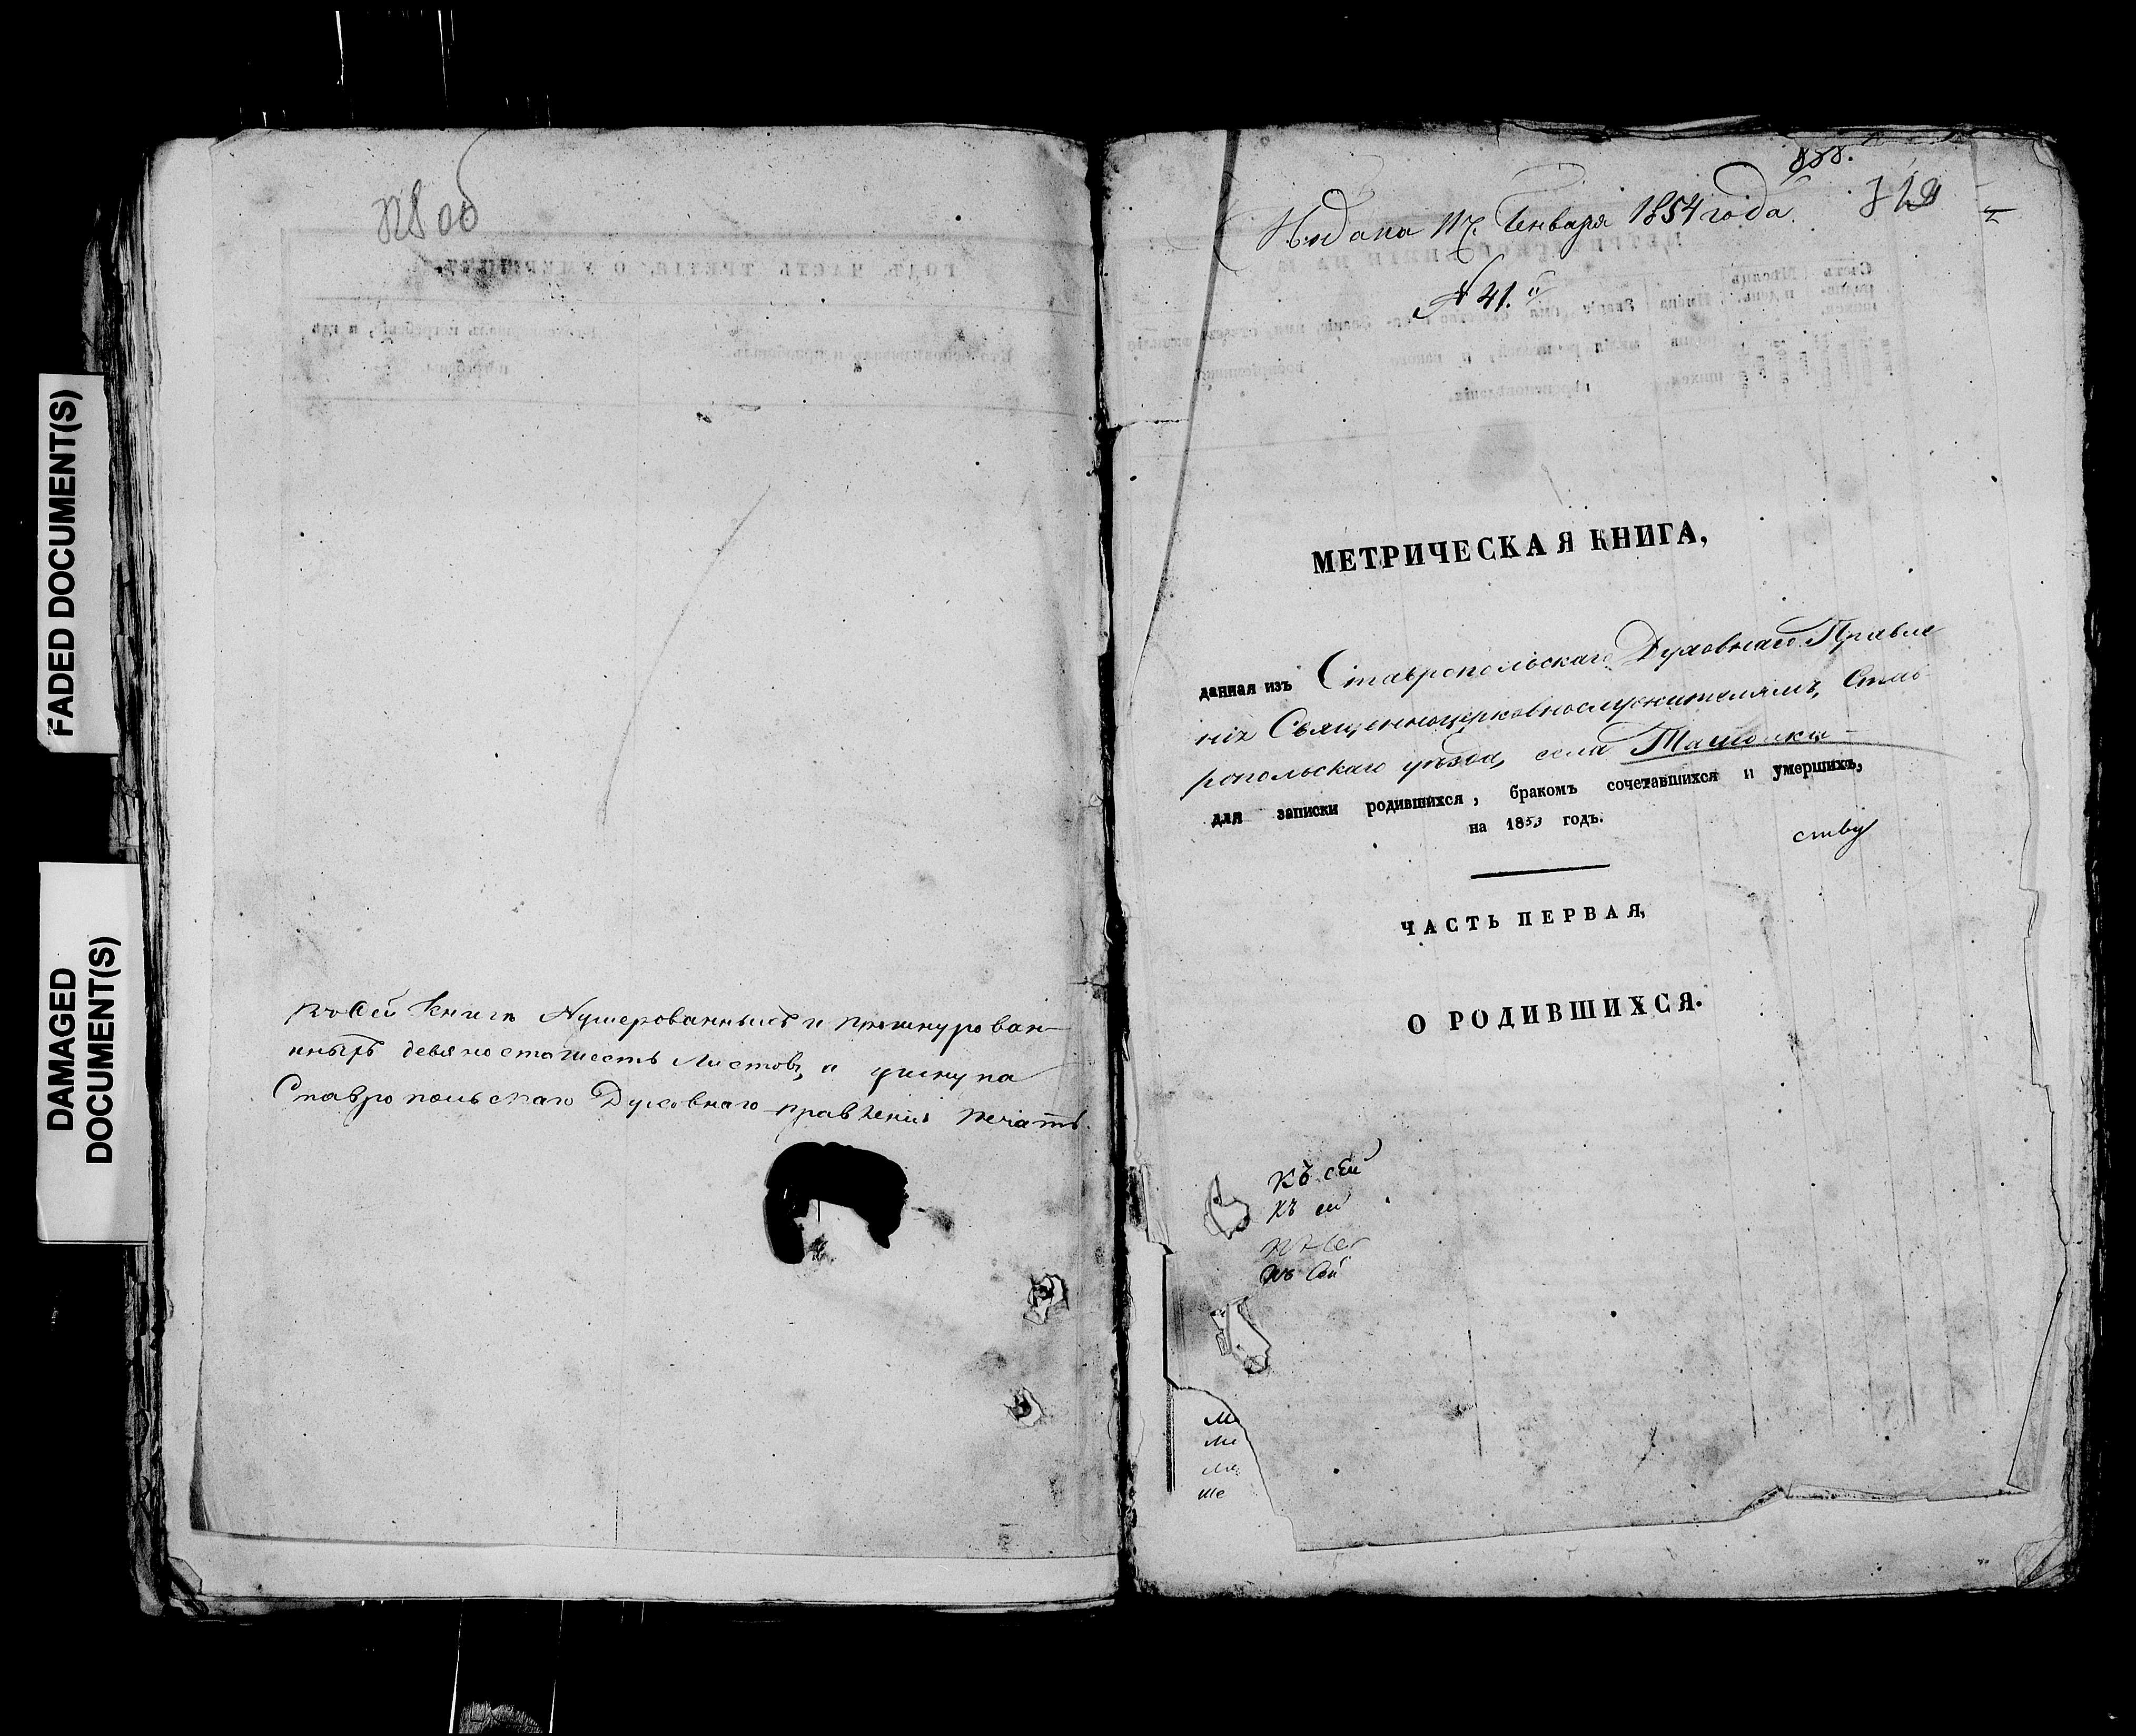 FADED DOCUMENT(S)
DAMAGED
DOCUMENT(S)
Къ Сей Книгѣ Нумерованныхъ и прошнурован-
нныхъ девяносташесть Листовъ, и у шнура
Ставропольскаго Духовнаго правленія печать.
Января 1854 года.
№ 41.й
МЕТРИЧЕСКАЯ КНИГА,
данная изъ Ставропольскаго Духовнаго Правле
нія Священноцерковнослужителямъ, Став-
ропольскаго уѣзда, села Ташолки
для записки родившихся, бракомъ сочетавшихся и умершихъ,
на 1853 годъ.
ству
ЧАСТЬ ПЕРВАЯ,
О РОДИВШИХСЯ.
Къ сей
Къ сей
Къ Сей